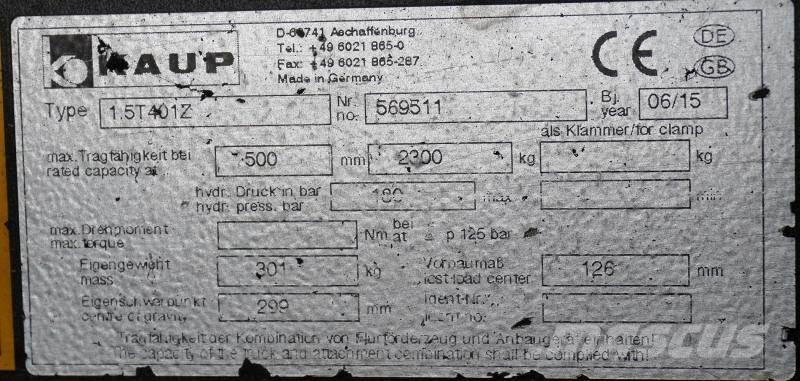 KAUP
D-63741 Aschaffenburg
Tel.: +49 6021 865-0
Fax: +49 6021 865-287
Made in Germany
CE
DE
GB
Type 1.5T401Z Nr. no. 569511 Bj. year 06/15
als Klammer/for clamp
max. Tragfähigkeit bei
rated capacity at 500 mm 2300 kg kg
hydr. Druck in bar
hydr. press. bar 180 max min
max. Drehmoment
max. torque Nm bei at △ p 125 bar
Eigengewicht
mass 301 kg Vorbaumaß
lost load center 126 mm
Eigenschwerpunkt
centre of gravity 299 mm Ident-Nr.
Ident no.
Tragfähigkeit der Kombination von Flurförderzeug und Anbaugerät einhalten!
The capacity of the truck and attachment combination shall be complied with!